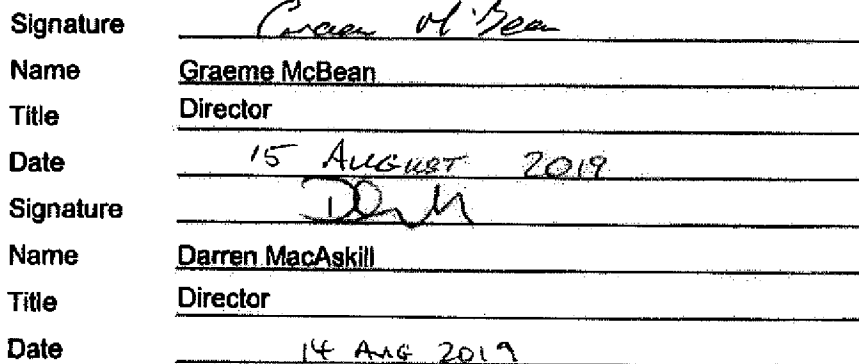 Signature Graeme McBean
Name Graeme McBean
Title Director
Date 15 AUGUST 2019
Signature
Name Darren MacAskill
Title Director
Date 14 AUG 2019